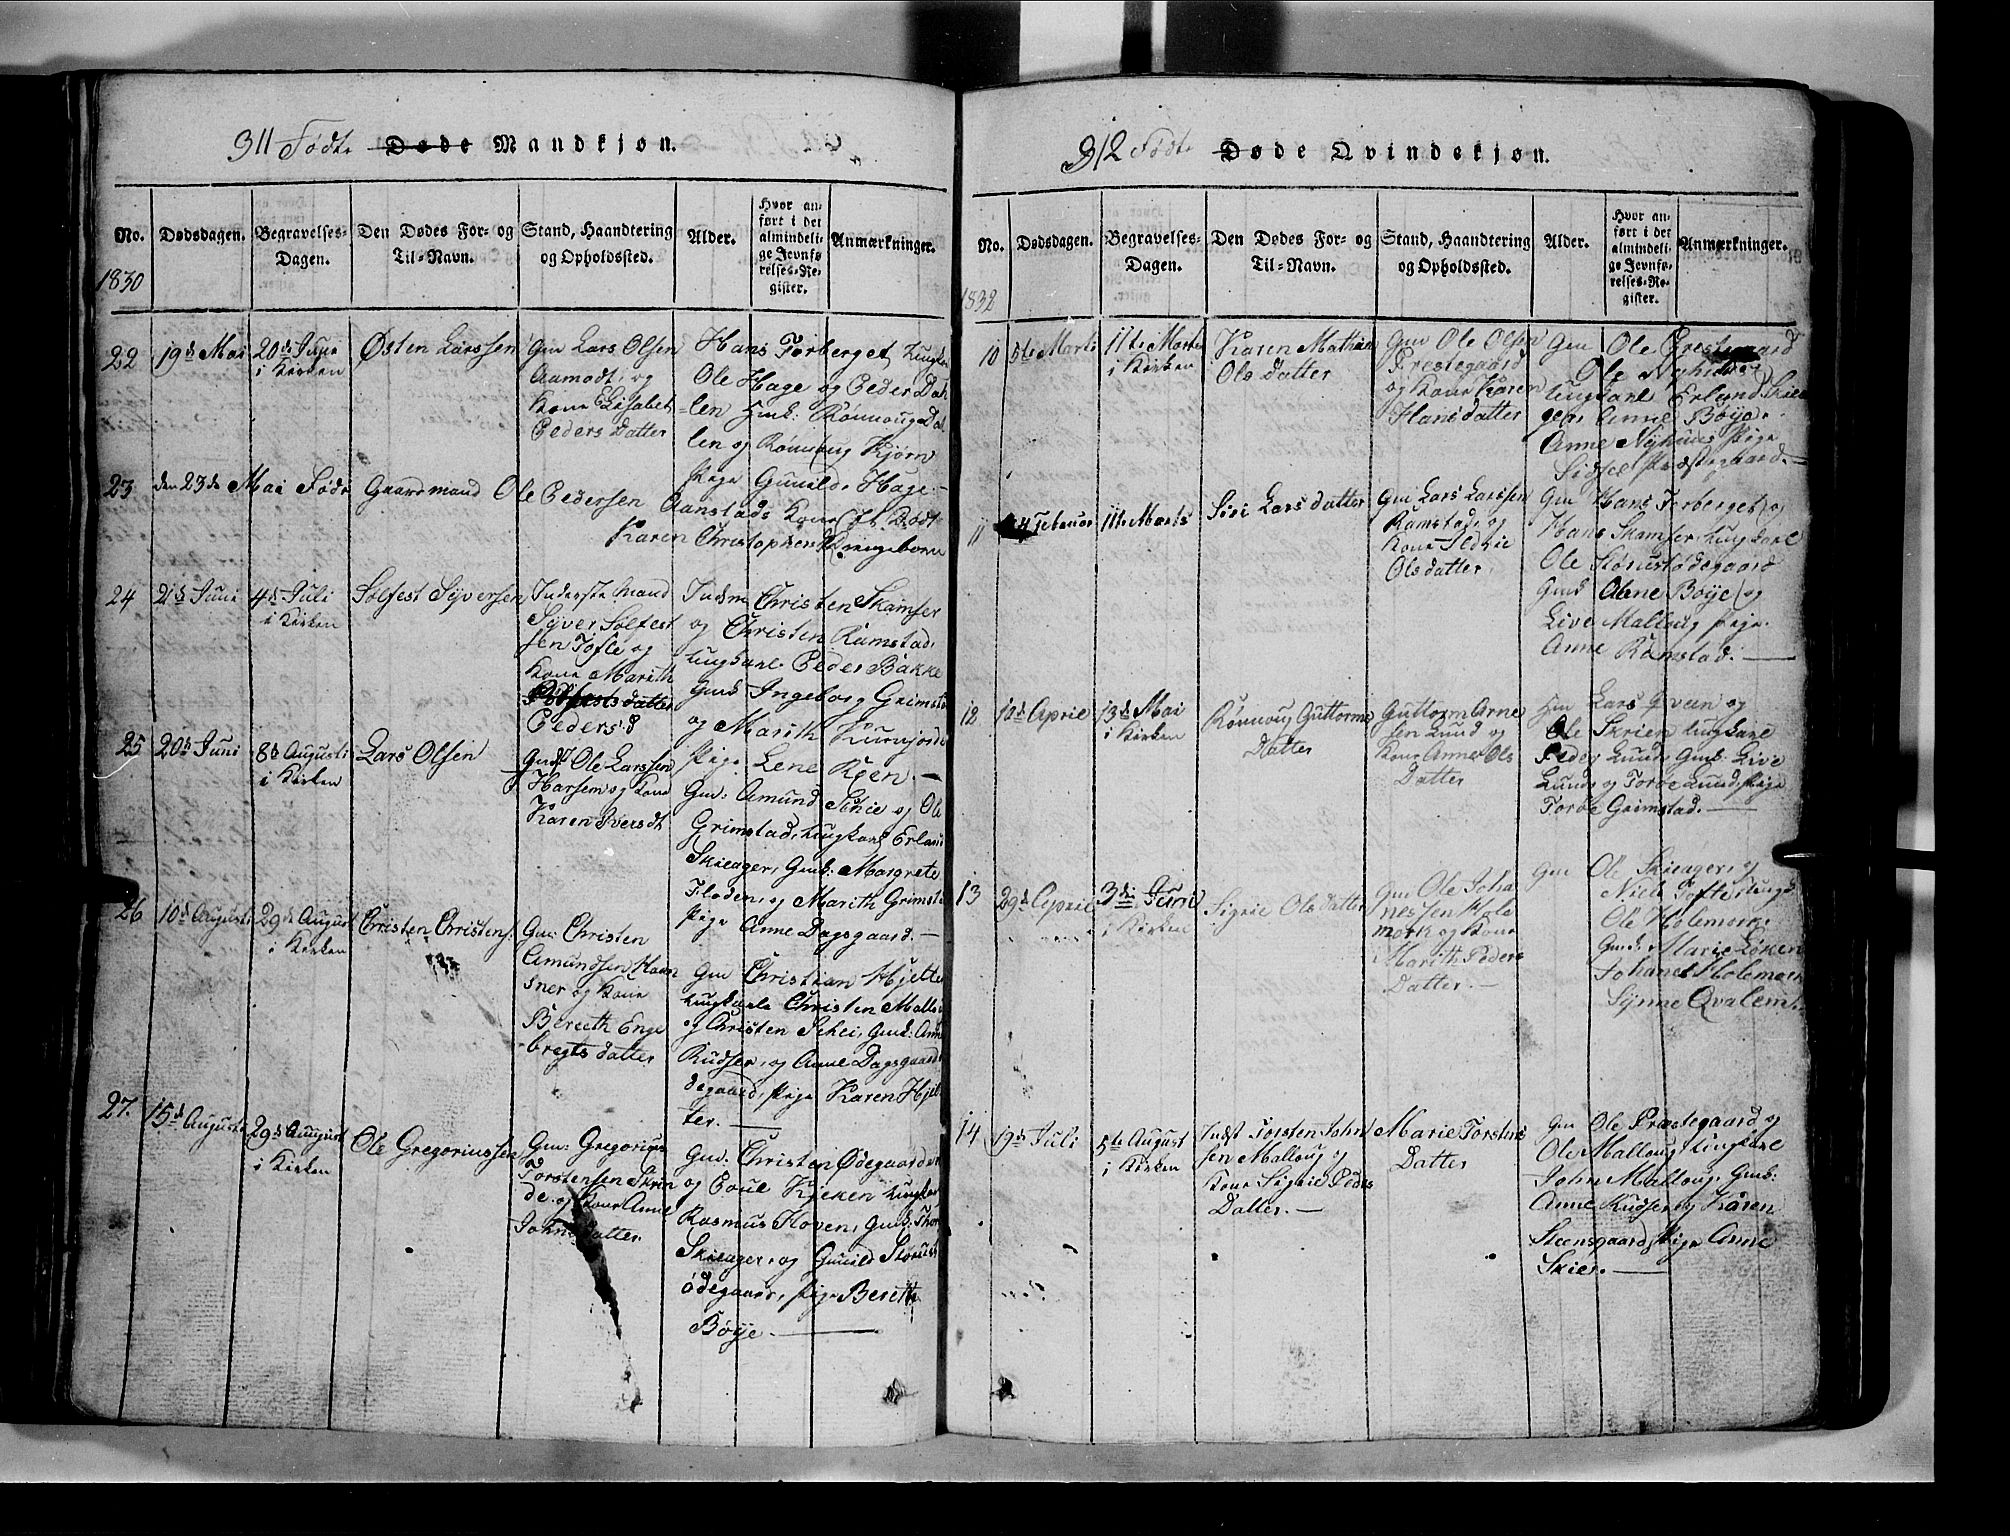 311 Født. Døde Mandkjøn.
No. Dødsdagen. Begravelses-Dagen. Den Dødes For- og Til-Navn. Stand, Haandtering og Opholdssted. Alder. Hvor anført i det almindelige Jevnførelses-Register. Anmærkninger.
1830
22 19de Mai 20de Juni i Kirken
Østen Larssen
Gm Lars Olsen
Aamodt, og
Kone Elisabet
Peders Datter
Hans Forberget, Ungkarl
Ole Hage og Peder Dah
len Gmk: Rønnoug Dal
len og Rønnoug Kjørn
Pige Gunild Hage.
23 den 23de Mai Født Gaardmand Ole Pedersen Aanstads Kone Et Dødt
Karen Christophersd. Drengebarn
24 21de Juni 4de Juli i Kirken
Sølfest Syversen
Inderste Mand
Syver Sølfest
sen Tofte og
Kone Marith
Sølfestsdatter
Peders: d
Indm Christen Skamser
og Christen Ramstad,
Ungkarl Peder Bakke
Gmk Ingeborg Grimst
og Marith Kurvjorde
Pige Lene Kjen. —
25 20de Juni 8de Augusti i Kirken
Lars Olsen
Gm Ole Larssen
Harsem og Kone
Karen Iversdt
Gm: Amund Schie og Ole
Grimstad, Ungkarl Erland
Skieager, Gmk: Margrete
Floden, og Marith Grimsta
Pige Anne Dagsgaard. —
26 10de Augusti 29de August i Kirken
Christen Christens.
Gm: Christen
Amundsen Haan
sner og Kone
Bereth Enge
bregts datter
Gm Christian Hjelter
Ungkarle Christen Mallou
og Christen Schei, Gmk: Anne
Rudser, og Anne Dagsgaard
degaard, Pige Karen Hjel
ter. —
27. 15de Augusti 29de August i Kirken
Ole Gregoriussen
Gm: Gregorius
Torstensen Skrin
de og Kone Anne
Johnsdatter
Gm: Christen Ødegaarden
og Poul Kjeken Ungkarl
Rasmus Hoven, Gmk: Thor
Skieager, og Gunild Størust
ødegaard, Pige Bereth
Bøye. —
312 Født. Døde Qvindekjøn.
No. Dødsdagen. Begravelses-Dagen. Den Dødes For- og Til-Navn. Stand, Haandtering og Opholdssted. Alder. Hvor anført i det almindelige Jevnførelses-Register. Anmærkninger.
1832
10 5te Marts 11te Marts i Kirken
Karen Mathia
Ols Datter
Gm Ole Olsen
Prestegaard
og Kone Karen
Hansdatter
Gm Ole Prestegaard
Ole Nyhuus
Ungkarl Erland Skie
ger Anne Bøye.
Anne Nyhuus Pige
Sidsel Præstegaard. —
11 4 Februar 11te Marts
Siri Larsdatter
Gm Lars Larssen
Ramstad, og
Kone Ildrie
Olsdatter
Gm Hans Forberget og
Hans Skamser Ungkarl
Ole Størustødegaard
Gmk Anne Bøye og
Live Malloug Pige
Anne Ramstad. —
12 12de Aprie 13de Mai i Kirken
Rønnoug Guttorms
Datter
Guttorm Arne
sen Lund og
Kone Anne Ols
Datter
Gm Lars Qveen og
Ole Skrien Ungkarl
Peder Lund, Gmk: Live
Lund og Toroe Lund, Pige
Toroe Grimstad. —
13 29de Aprie 3die Juni i Kirken
Sigrie Ols Datter
Gm Ole Joha
nessen Hole
mork og Kone
Marith Peders
Datter. —
Gm Ole Skieager, og
Niels Tofte Ungk
Ole Holemork
Gmk: Marie Løken
Johanel Holemork
Synne Qvalem.
14 19de Juli 5te August i Kirken
Indst Torsten John
sen Malloug og
Kone Sigrie Peders
Datter. —
Marie Torstens
Datter
Gm Ole Præstegaard og
Ole Malloug, Ungkarl
John Malloug, Gmk:
Anne Rudser og Karen
Steensgaard, Pige Anne
Skier. —